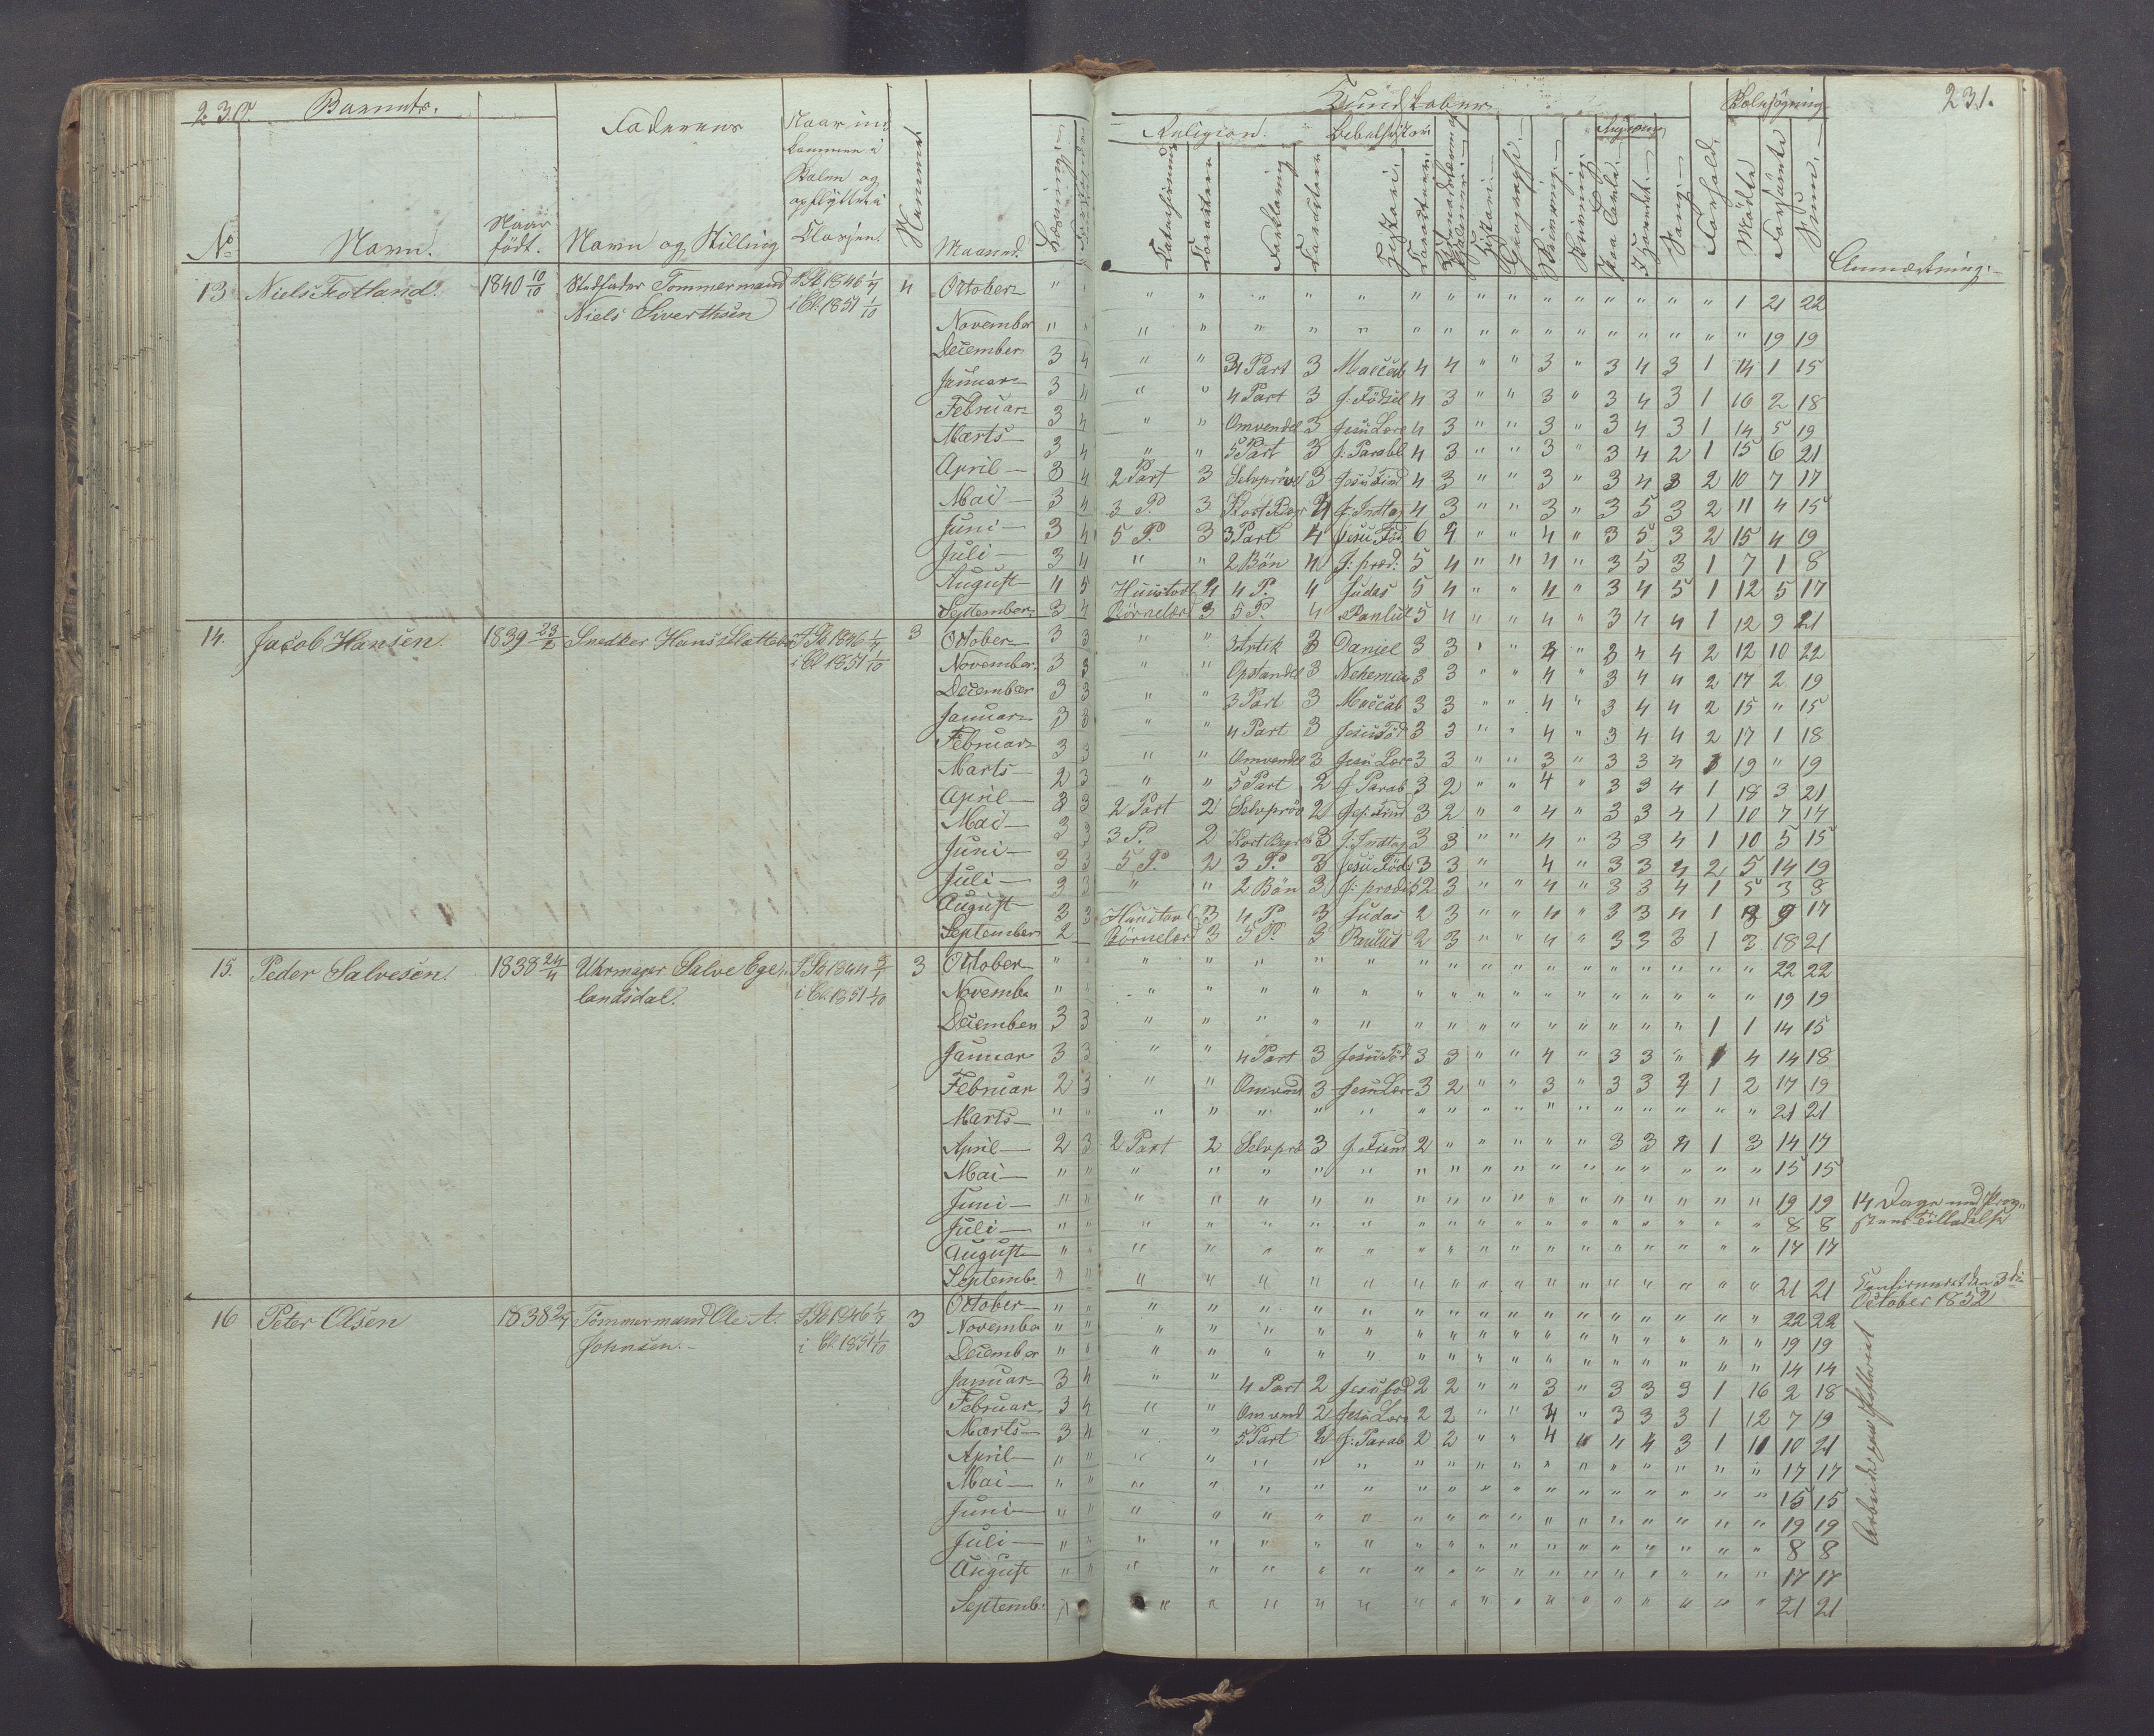 230. Barnets.
Faderens
Naar ind-
kommen i
Skolen og
opflyttet i
Klassen.
No Navn. Naar født. Navn og Stilling Nummer Maaned.
Kundskaber Skolesøgning 231.
Religion. Bibelhistorie
Forklaring Historie Geographi. Skrivning. Regning. Sang. Forhold. Mødte Forsømte Sum. Anmærkning.
13 Niels Fotland. 1840 10/10 Stedfader Tømmermand 1846 1/7 4 October " "
Niels Siverthsen i Cl. 1851 1/10
" " " " " " " " " " " " " " " 1 21 22
November " " " " " " " " " " " " " " " " " " 19 19
December 3 4 " " 3 Part 3 Maccab 4 4 " " 3 " 3 4 3 1 14 1 15
Januar 3 4 " " 4 Part 3 J. Fødsel 4 3 " " 3 " 3 4 3 1 16 2 18
Februar 3 4 " " Omvendel 3 Jesu Lære 4 3 " " 3 " 3 4 3 1 14 5 19
Marts 3 4 " " 5 Part 3 J. Parabl 4 3 " " 3 " 3 4 2 1 15 6 21
April 3 4 2 Part 3 Selvprøvel 3 Jesu 4 3 " " 3 " 3 4 3 2 10 7 17
Mai 3 4 3 P. 3 4 J. Indtog 4 3 " " 3 " 3 5 3 2 11 4 15
Juni 3 4 5 P. 3 3 Part 4 Jesu Fød 6 4 " " 4 " 3 5 3 2 15 4 19
Juli 3 4 " " 2 Bøn 4 J: præd: 5 4 " " 4 " 3 5 3 1 7 1 8
August 4 5 Huustavl 4 4 P. 4 Judas 5 4 " " 4 " 3 4 5 1 12 5 17
September 3 4 Børnelærd 3 5 P. 4 Paulus 5 4 " " 4 " 3 4 4 1 12 9 21
14. Jacob Hansen. 1839 23/2 Snedker Hans 1846 1/7 3 October 3 3 " " 3 Artik 3 Daniel 3 3 " " 4 " 3 4 4 2 12 10 22
i Cl 1851 1/10
November 3 3 " " Opstandel 3 Nehemias 3 3 " " 4 " 3 4 4 2 17 2 19
December 3 3 " " 3 Part 3 Maccab 3 3 " " 4 " 3 4 4 2 15 " 15
Januar 3 3 " " 4 Part 3 Jesu Fød 3 3 " " 4 " 3 4 4 2 17 1 18
Februar 3 3 " " Omvendel 3 Jesu Lære 3 3 " " 3 " 3 3 4 1 19 " 19
Marts 2 3 " " 5 Part 2 J Parab 3 2 " " 4 " 3 3 4 1 18 3 21
April 3 3 2 Part 2 Selvprøv 2 3 2 " " 4 " 3 3 4 1 10 7 17
Mai 3 3 3 P. 2 3 J. Indtog 3 3 " " 4 " 3 3 4 1 10 5 15
Juni 3 3 5 P. 2 3 P. 3 Jesu Føds 3 3 " 4 " 3 3 4 2 5 14 19
Juli 3 3 " " 2 Bøn 3 J: præd: 2 3 " " 4 " 3 3 4 1 5 3 8
August 3 3 Huustavl 3 4 P. 3 Judas 2 3 " " 4 " 3 3 4 1 8 9 17
September 2 Børnelærd 3 5 P. 3 Paulus 2 3 " " 4 " 3 3 3 1 3 18 21
15. Peder Salvesen. 1838 24/4 Uhrmager Salve Ege- 1844 3 October " " " " " " " " " " " " " " " " " " 22 22
landsdal. i Cl. 1851 1/10
Novembe " " " " " " " " " " " " " " " " " " 19 19
December 3 3 " " " " " " " " " " " " " " 1 1 14 15
Januar 3 3 " " 4 Part 3 Jesu Fød 3 3 " " 4 " 3 3 " 1 4 14 18
Februar 2 3 " " Omvend 3 Jesu Lære 3 2 " " 3 " 3 3 4 1 2 17 19
Marts " " " " " " " " " " " " " " " " " " 21 21
April 2 3 2 Part 2 Selvprø 3 2 " " " " " 3 3 4 1 3 14 17
Mai " " " " " " " " " " " " " " " " " " 15 15
Juni " " " " " " " " " " " " " " " " " " 19 19 14 Dage med Prov-
Juli " " " " " " " " " " " " " " " " " " 8 8 stens Tilladelse
August " " " " " " " " " " " " " " " " " " 17 17
Septemb. " " " " " " " " " " " " " " " " " " 21 21 Confirmeret den 3die
October 1852
16 Peter Olsen 1838 2/7 Tømmermand Ole A. 1846 1/7 3 October " " " " " " " " " " " " " " " " " " 22 22
Johnsen. i Cl. 1851 1/10
Novembe " " " " " " " " " " " " " " " " " " 19 19
December " " " " " " " " " " " " " " " " " " 14 14
Januar 3 4 " " 4 Part 2 Jesu fød 2 2 " " 3 " 3 3 3 1 16 2 18
Februar 3 4 " " Omvend 2 Jesu Lære 2 2 " " 4 " 3 3 3 1 12 7 19
Marts 3 4 " " 5 Part 2 J: Parab 2 2 " " 4 " 4 4 3 1 11 10 21
April " " " " " " " " " " " " " " " " " " 17 17
Mai " " " " " " " " " " " " " " " " " " 15 15
Juni " " " " " " " " " " " " " " " " " " 19 19
Juli " " " " " " " " " " " " " " " " " " 8 8
August " " " " " " " " " " " " " " " " " " 17 17
Septemb. " " " " " " " " " " " " " " " " " 21 21
Arbeider paa